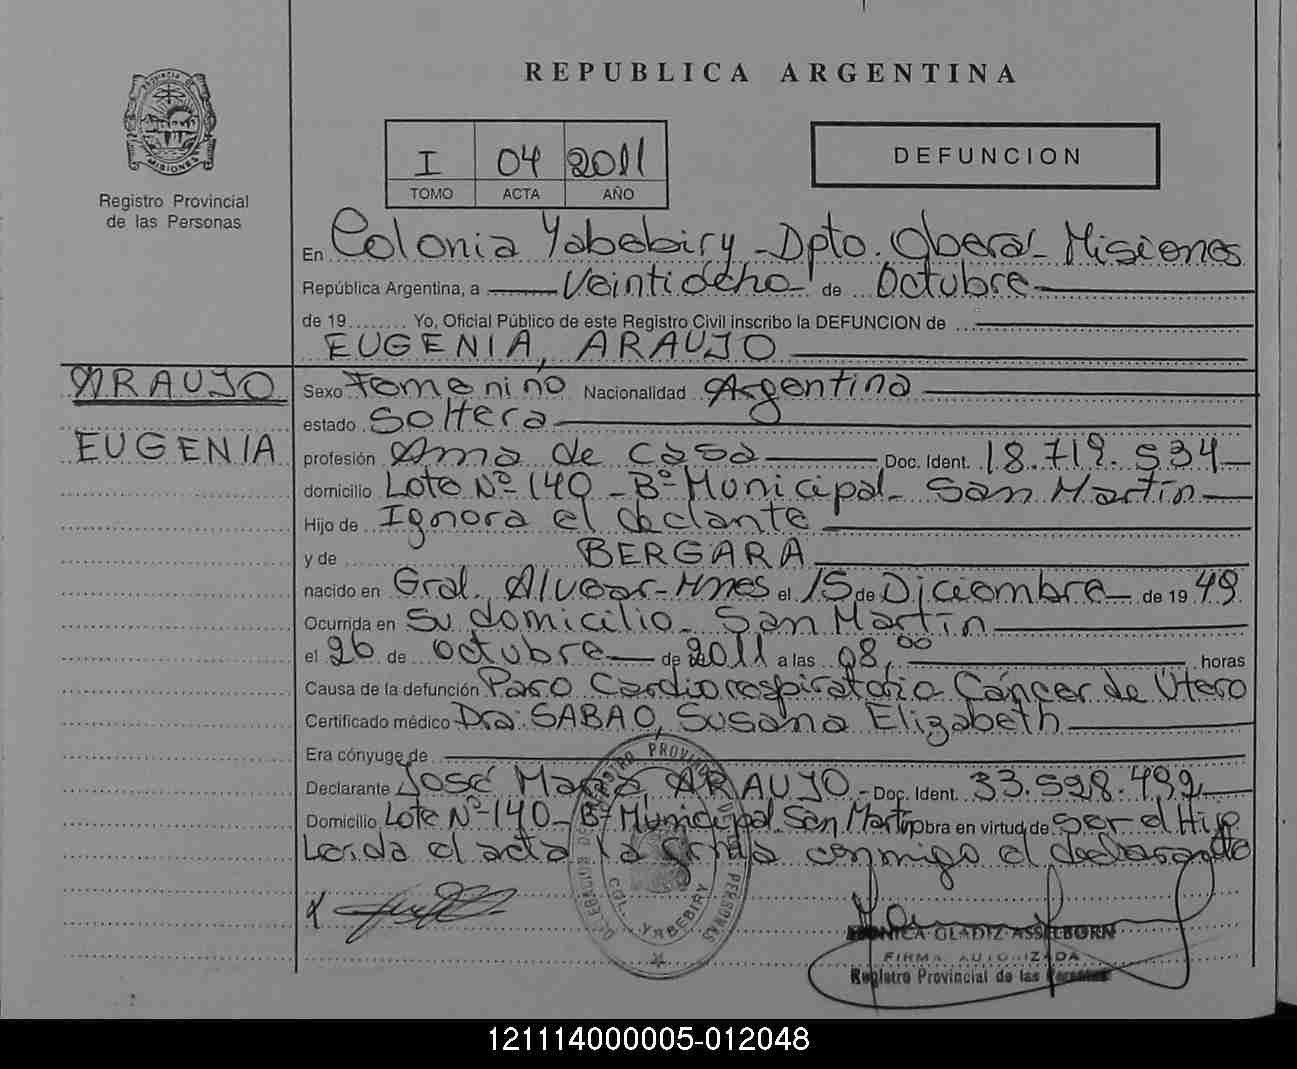 REPUBLICA ARGENTINA
PROVINCIA DE MISIONES
Registro Provincial
de las Personas
I 04 2011
TOMO ACTA AÑO
DEFUNCION
En Colonia Yabebiry - Dpto. Oberá - Misiones
República Argentina, a Veintiocho de Octubre
de 19........ Yo, Oficial Público de este Registro Civil inscribo la DEFUNCION de
EUGENIA, ARAUJO
ARAUJO
EUGENIA
Sexo Femenino Nacionalidad Argentina
estado Soltera
profesión Ama de casa Doc. Ident. 18.719.534
domicilio Lote Nº 140 - Bº Municipal - San Martín
Hijo de Ignora el declante
y de BERGARA
nacido en Gral. Alvear - Mnes el 15 de Diciembre de 19 49
Ocurrida en Su domicilio - San Martín
el 26 de octubre de 2011 a las 08,00 horas
Causa de la defunción Paro Cardiorrespiratorio Cáncer de Utero
Certificado médico Dra: SABAO, Susana Elizabeth
Era cónyuge de
Declarante José María ARAUJO - Doc. Ident. 33.528.499
Domicilio Lote Nº 140 - Bº Municipal San Martín obra en virtud de Ser el Hijo
Leida el acta la firma conmigo el declarante
COL. YABEBIRY
MONICA GLADIZ ASSELBORN
FIRMA AUTORIZADA
Registro Provincial de las Personas
121114000005-012048